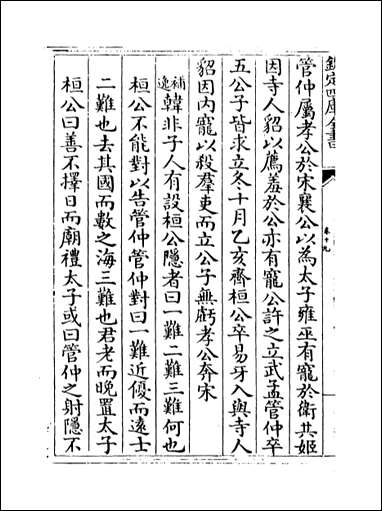 欽定四庫全書
卷十九
管仲屬孝公於宋襄公以為太子雍巫有寵於衛共姬
因寺人貂以薦羞於公亦有寵公許之立武孟管仲卒
五公子皆求立冬十月乙亥齊桓公卒易牙入與寺人
貂因内寵以殺羣吏而立公子無虧孝公奔宋
補逸韓非子人有設桓公隱者曰一難二難三難何也
桓公不能對以告管仲管仲對曰一難近優而遠士
二難也去其國而數之海三難也君老而晚置太子
桓公曰善不擇日而廟禮太子或曰管仲之射隱不